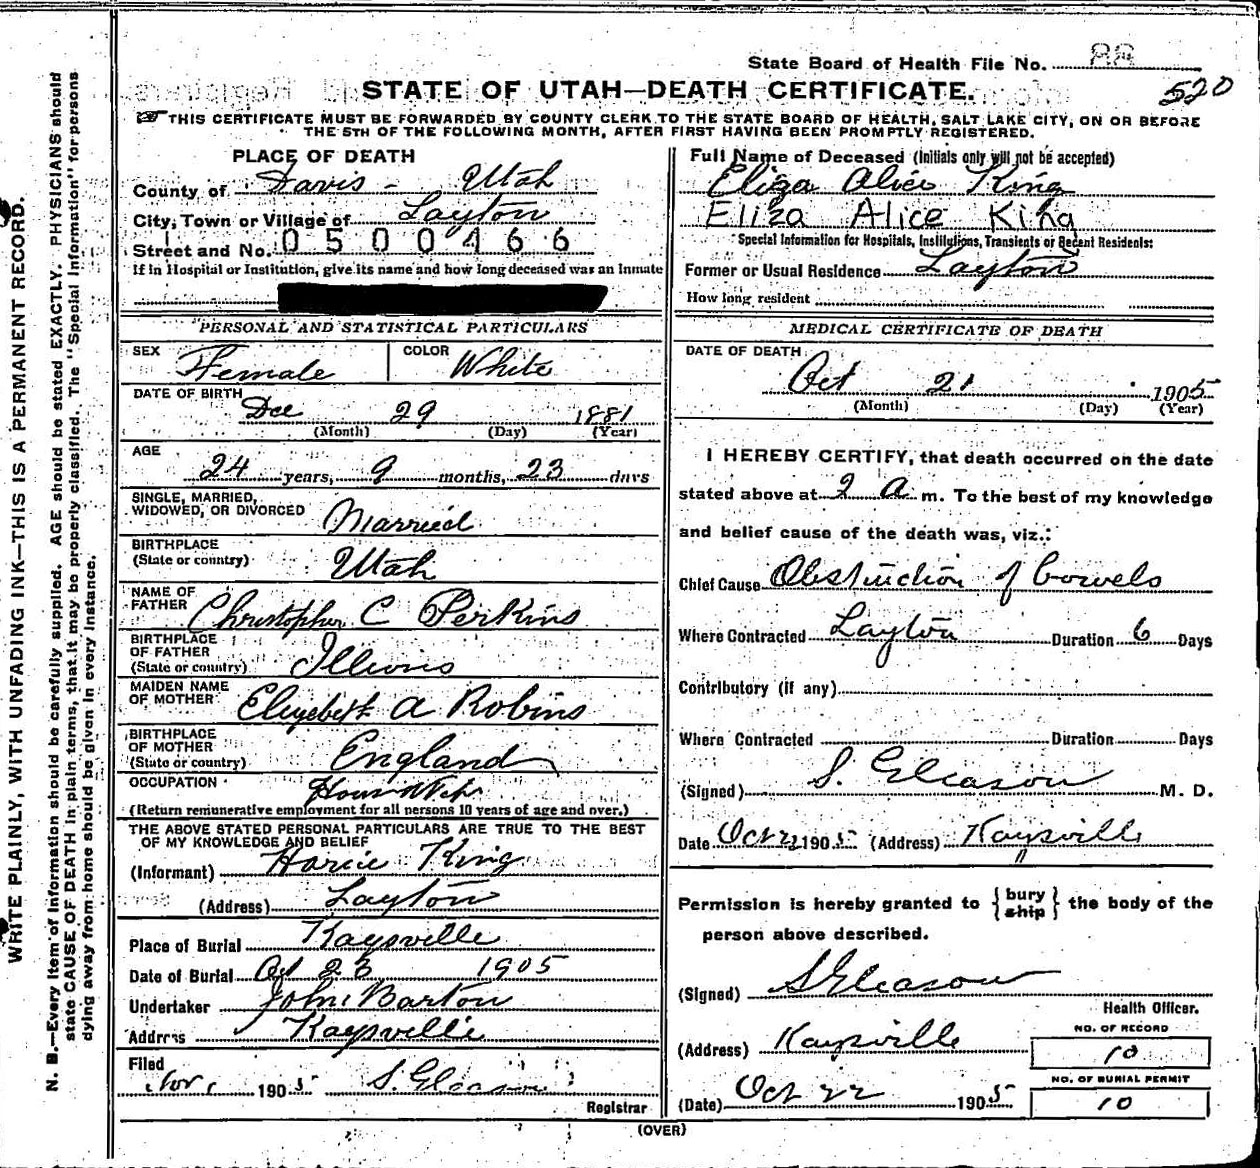 State Board of Health File No. 88
520
STATE OF UTAH—DEATH CERTIFICATE.
THIS CERTIFICATE MUST BE FORWARDED BY COUNTY CLERK TO THE STATE BOARD OF HEALTH, SALT LAKE CITY, ON OR BEFORE
THE 5TH OF THE FOLLOWING MONTH, AFTER FIRST HAVING BEEN PROMPTLY REGISTERED.
WRITE PLAINLY, WITH UNFADING INK—THIS IS A PERMANENT RECORD.
N. B.—Every item of information should be carefully supplied. AGE should be stated EXACTLY. PHYSICIANS should
state CAUSE OF DEATH in plain terms, that it may be properly classified. The "Special Information" for persons
dying away from home should be given in every instance.
PLACE OF DEATH
County of Davis - Utah
City, Town or Village of Layton
Street and No. 0500466
If in Hospital or Institution, give its name and how long deceased was an Inmate
PERSONAL AND STATISTICAL PARTICULARS
SEX Female COLOR White
DATE OF BIRTH Dec 29 1881
(Month) (Day) (Year)
AGE
24 years, 9 months, 23 days
SINGLE, MARRIED,
WIDOWED, OR DIVORCED Married
BIRTHPLACE
(State or country) Utah
NAME OF
FATHER Christopher C Perkins
BIRTHPLACE
OF FATHER
(State or country) Illinois
MAIDEN NAME
OF MOTHER Elizebeth A Robins
BIRTHPLACE
OF MOTHER
(State or country) England
OCCUPATION House Wife
(Return remunerative employment for all persons 10 years of age and over.)
THE ABOVE STATED PERSONAL PARTICULARS ARE TRUE TO THE BEST
OF MY KNOWLEDGE AND BELIEF
(Informant) King
(Address) Layton
Place of Burial Kaysville
Date of Burial Oct 23 1905
Undertaker John Barton
Address Kaysville
Filed
Nov 1 1905 S. Gleason
Registrar
Full Name of Deceased (Initials only will not be accepted)
Eliza Alice King
Eliza Alice King
Special Information for Hospitals, Institutions, Transients or Recent Residents:
Former or Usual Residence Layton
How long resident
MEDICAL CERTIFICATE OF DEATH
DATE OF DEATH
Oct 21 1905
(Month) (Day) (Year)
I HEREBY CERTIFY, that death occurred on the date
stated above at 2 a m. To the best of my knowledge
and belief cause of the death was, viz.:
Chief Cause Obstruction of bowels
Where Contracted Layton Duration 6 Days
Contributory (if any)
Where Contracted Duration Days
(Signed) S. Gleason M. D.
Date Oct 22 1905 (Address) Kaysville
Permission is hereby granted to { bury ship } the body of the
person above described.
(Signed) S Gleason
Health Officer.
(Address) Kaysville
NO. OF RECORD
10
(Date) Oct 22 1905
NO. OF BURIAL PERMIT
10
(OVER)